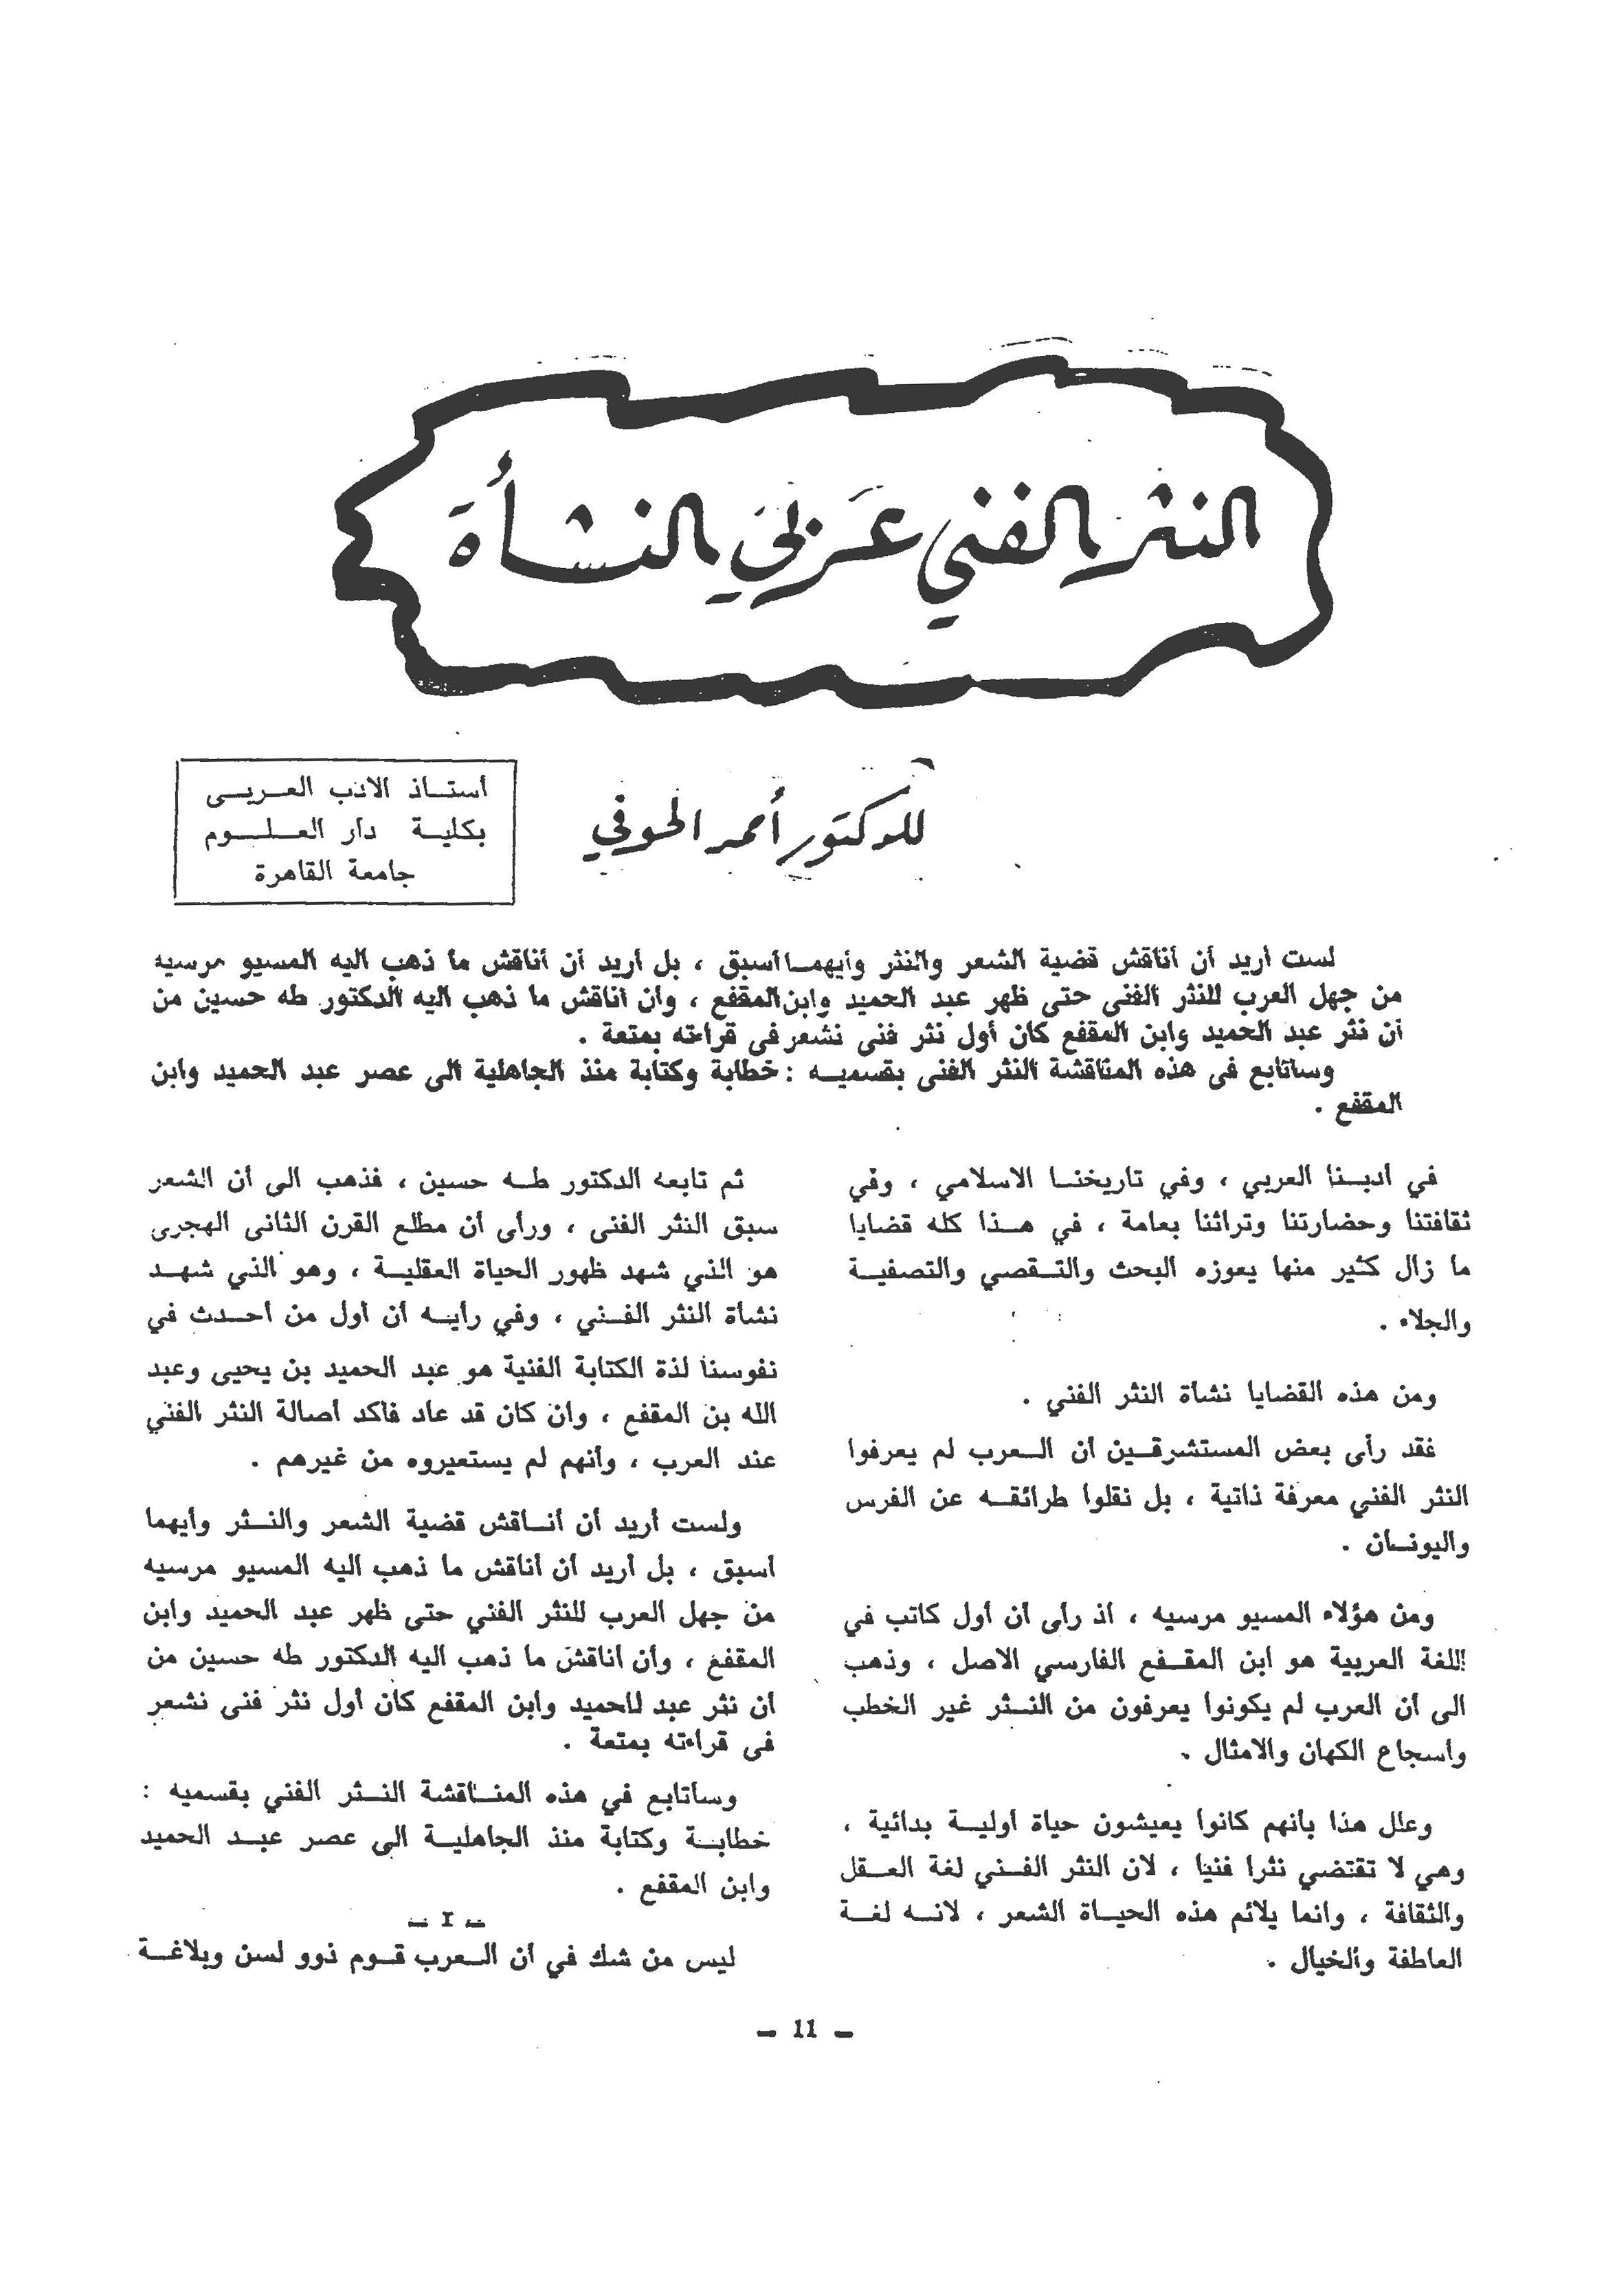 النثر الفني عربي النشأة
للدكتور أحمد الحوفي
أستاذ الادب العربى
بكلية دار العلوم
جامعة القاهرة
لست أريد أن أناقش قضية الشعر والنثر وأيهما أسبق ، بل أريد أن أناقش ما ذهب اليه المسيو مرسيه
من جهل العرب للنثر الفنى حتى ظهر عبد الحميد وابن المقفع ، وأن أناقش ما ذهب اليه الدكتور طه حسين من
أن نثر عبد الحميد وابن المقفع كان أول نثر فنى نشعر فى قراءته بمتعة .
وسأتابع فى هذه المناقشة النثر الفنى بقسميه : خطابة وكتابة منذ الجاهلية الى عصر عبد الحميد وابن
المقفع .
في أدبنا العربي ، وفي تاريخنا الاسلامي ، وفي
ثقافتنا وحضارتنا وتراثنا بعامة ، في هذا كله قضايا
ما زال كثير منها يعوزه البحث والتقصي والتصفية
والجلاء .
ومن هذه القضايا نشأة النثر الفني .
فقد رأى بعض المستشرقين أن العرب لم يعرفوا
النثر الفني معرفة ذاتية ، بل نقلوا طرائقه عن الفرس
واليونان .
ومن هؤلاء المسيو مرسيه ، اذ رأى أن أول كاتب في
اللغة العربية هو ابن المقفع الفارسي الاصل ، وذهب
الى أن العرب لم يكونوا يعرفون من النثر غير الخطب
وأسجاع الكهان والامثال .
وعلل هذا بأنهم كانوا يعيشون حياة أولية بدائية ،
وهي لا تقتضي نثرا فنيا ، لان النثر الفني لغة العقل
والثقافة ، وانما يلائم هذه الحياة الشعر ، لانه لغة
العاطفة والخيال .
ثم تابعه الدكتور طه حسين ، فذهب الى أن الشعر
سبق النثر الفنى ، ورأى أن مطلع القرن الثانى الهجرى
هو الذي شهد ظهور الحياة العقلية ، وهو الذي شهد
نشأة النثر الفني ، وفي رأيه أن أول من أحدث في
نفوسنا لذة الكتابة الفنية هو عبد الحميد بن يحيى وعبد
الله بن المقفع ، وان كان قد عاد فأكد أصالة النثر الفني
عند العرب ، وأنهم لم يستعيروه من غيرهم .
ولست أريد أن أناقش قضية الشعر والنثر وأيهما
أسبق ، بل أريد أن أناقش ما ذهب اليه المسيو مرسيه
من جهل العرب للنثر الفني حتى ظهر عبد الحميد وابن
المقفع ، وأن أناقش ما ذهب اليه الدكتور طه حسين من
أن نثر عبد لاحميد وابن المقفع كان أول نثر فنى نشعر
فى قراءته بمتعة .
وسأتابع في هذه المناقشة النثر الفني بقسميه :
خطابة وكتابة منذ الجاهلية الى عصر عبد الحميد
وابن المقفع .
– I –
ليس من شك في أن العرب قوم ذوو لسن وبلاغة
– 11 –